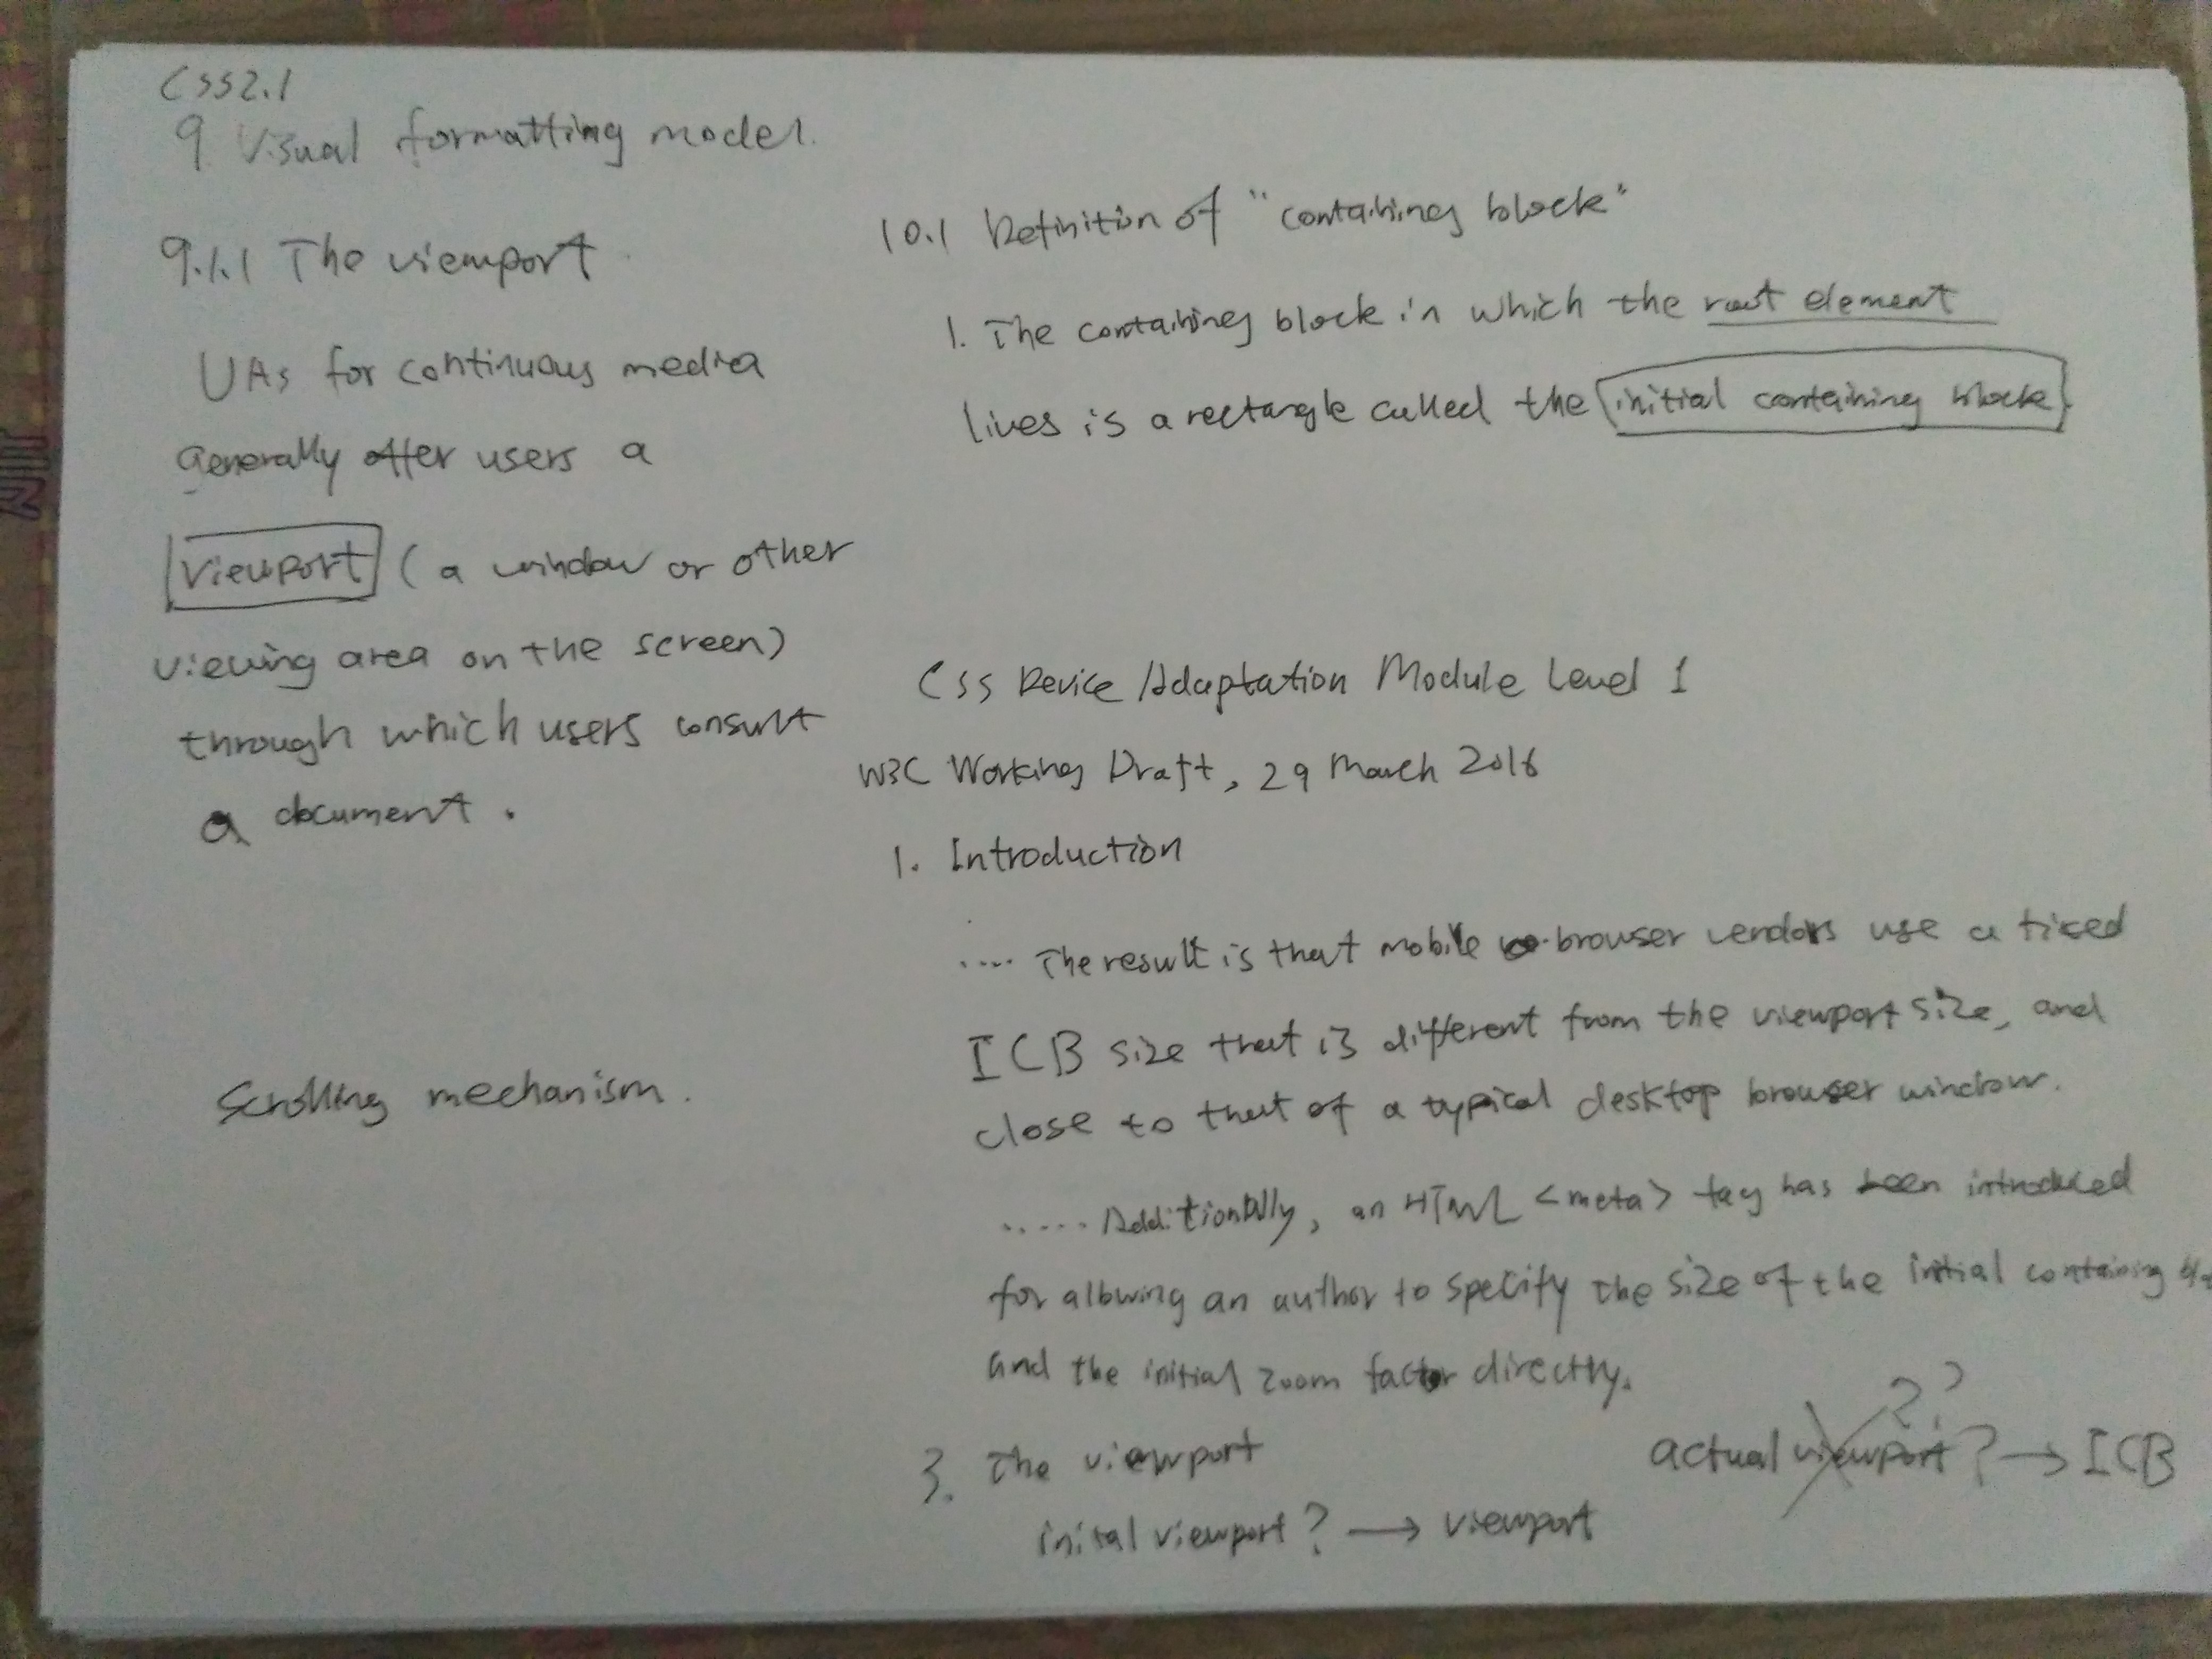 CSS2.1
9 Visual formatting model.
9.1.1 The viewport
UAs for continuous media
generally offer users a
viewport ( a window or other
viewing area on the screen)
through which users consult
a document .
Scrolling mechanism .
10.1 Definition of "containing block"
1. The containing block in which the root element
lives is a rectangle called the initial containing block
CSS Device Adaptation Module Level 1
W3C Working Draft, 29 March 2016
1. Introduction
.... The result is that mobile browser vendors use a fixed
ICB size that is different from the viewport size, and
close to that of a typical desktop browser window.
..... Additionally, an HTML <meta> tag has been introduced
for allowing an author to specify the size of the initial containing
and the initial zoom factor directly.
3. The viewport
actual viewport ? → ICB
??
inital viewport ? → viewport